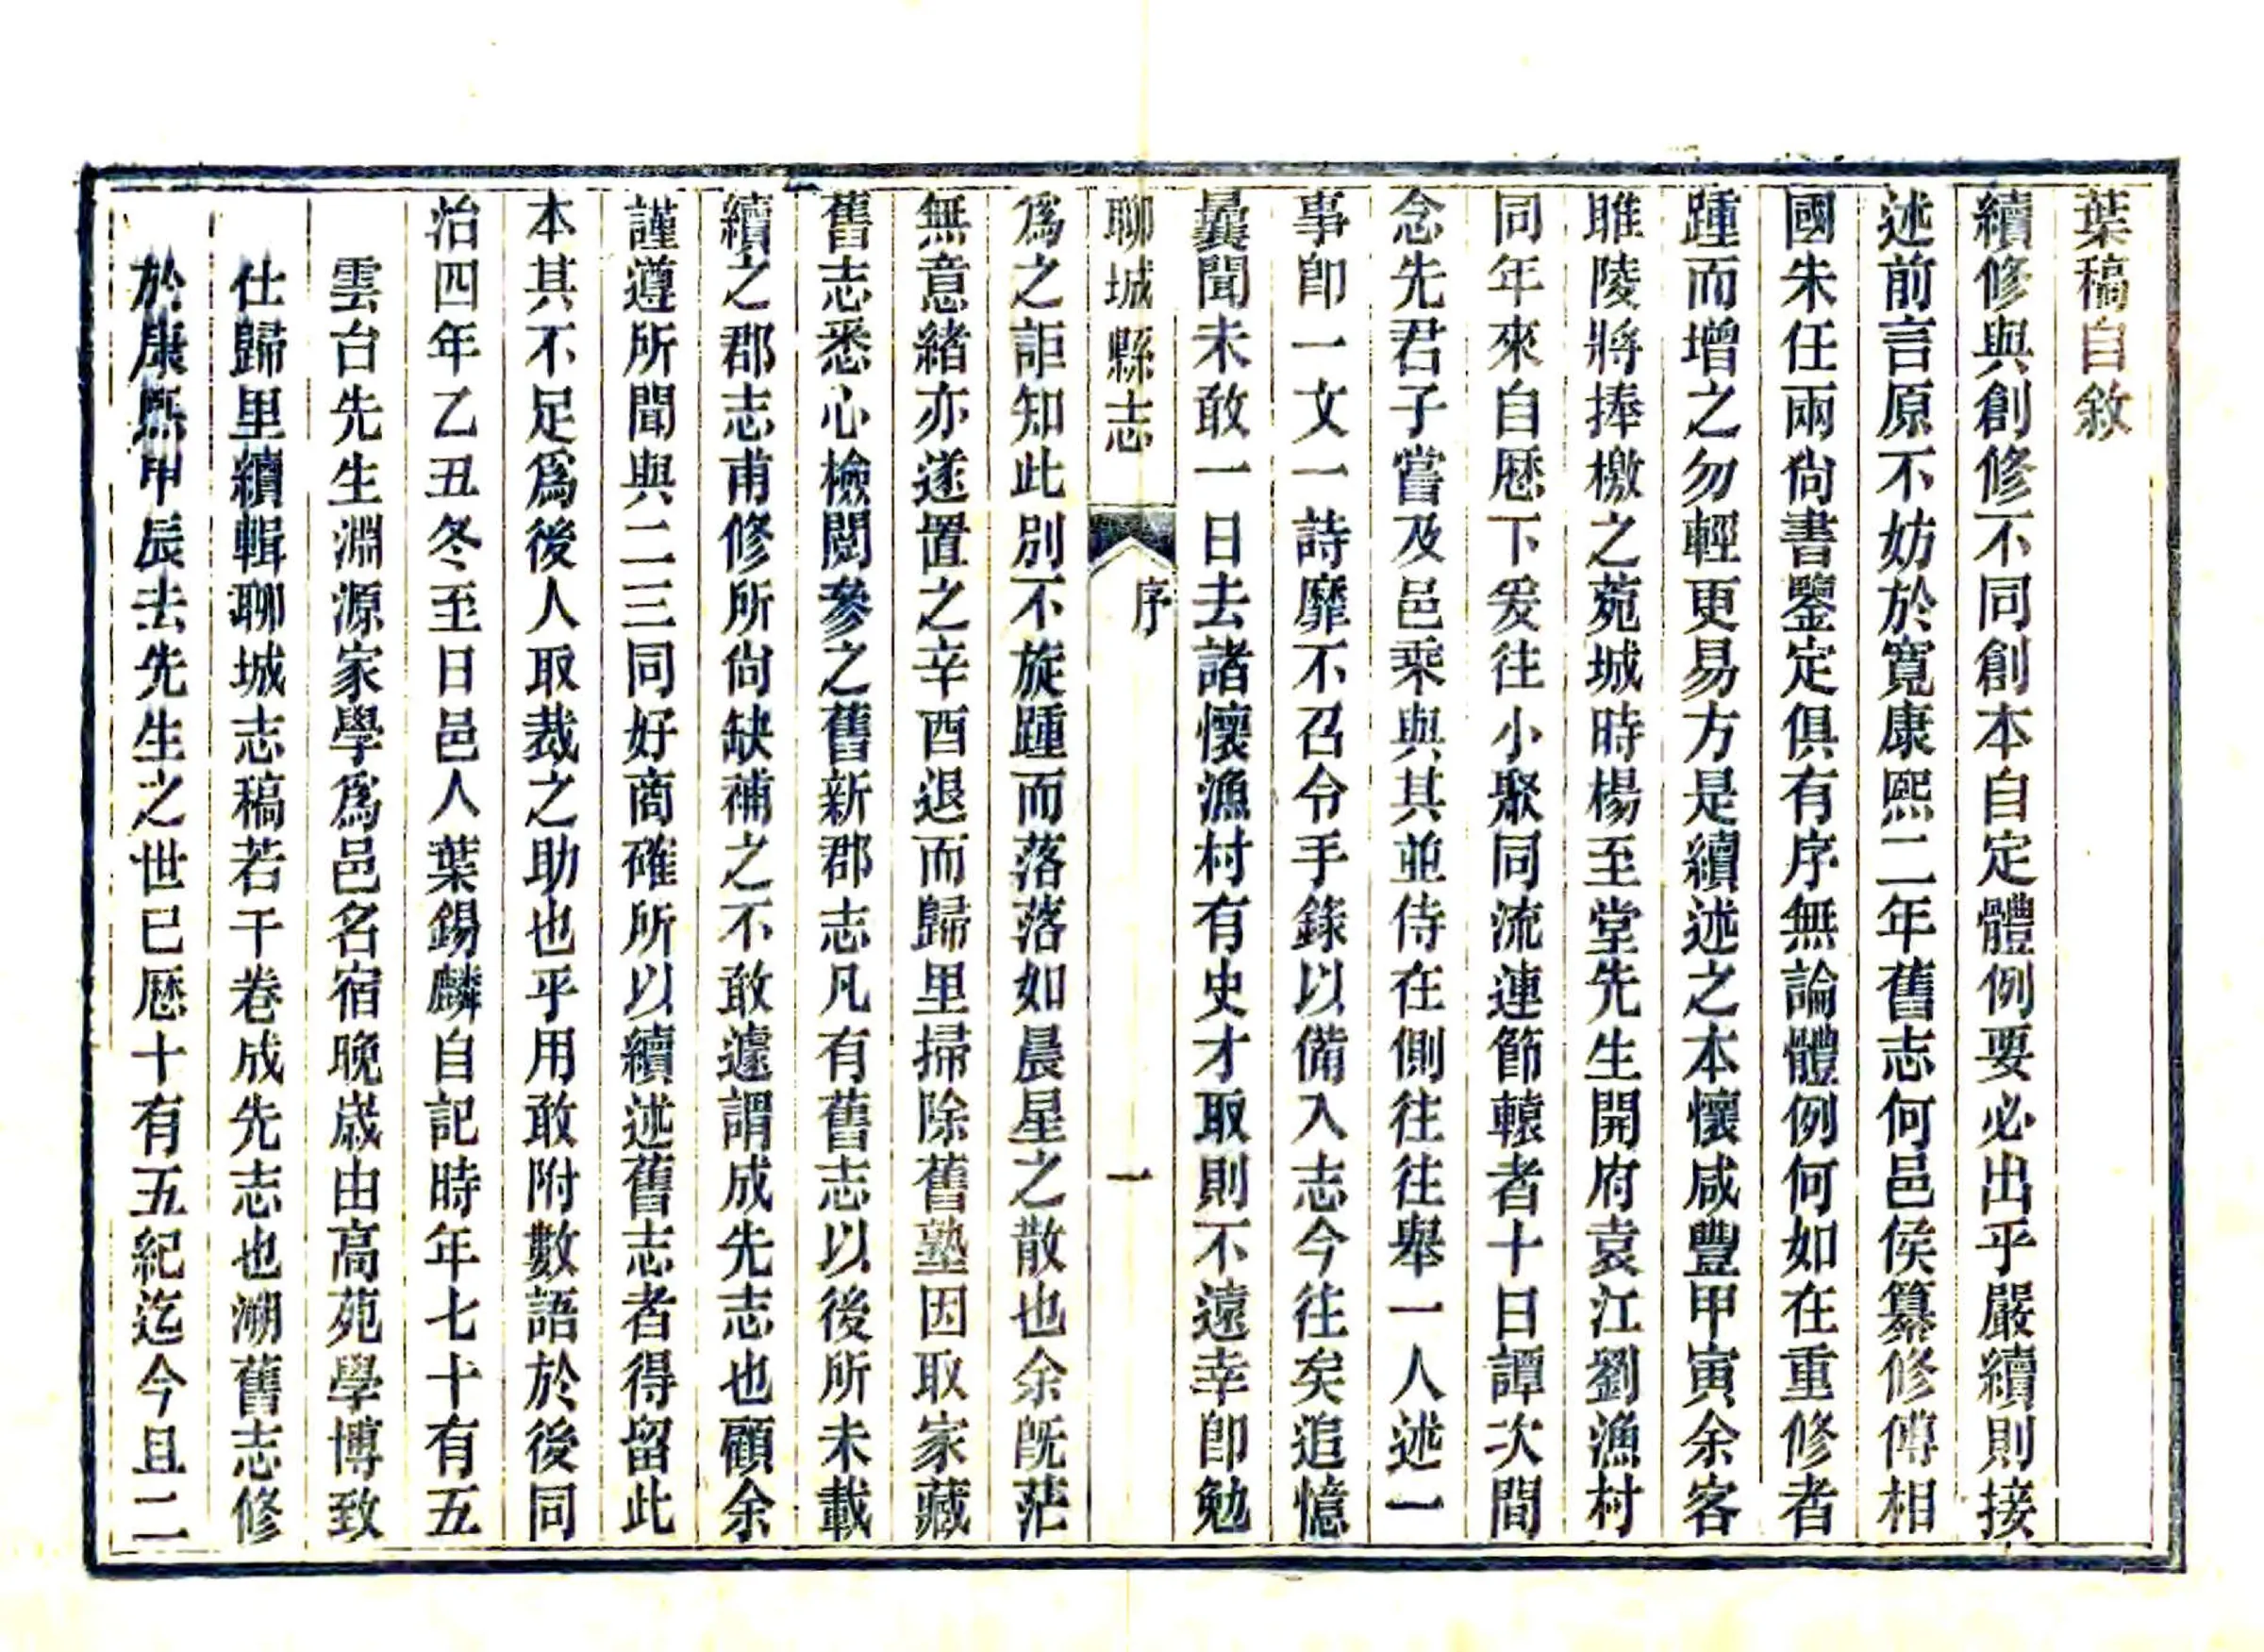 葉稿自敘
續修與創修不同創本自定體例要必出乎嚴續則接
述前言原不妨於寬康熙二年舊志何邑侯纂修傅相
國朱任兩尙書鑒定俱有序無論體例何如在重修者
踵而增之勿輕更易方是續述之本懷咸豐甲寅余客
睢陵將捧檄之菀城時楊至堂先生開府袁江劉漁村
同年來自歷下爰往小聚同流連節轅者十日譚次間
念先君子嘗及邑乘與其並侍在側往往舉一人述一
事卽一文一詩靡不召令手錄以備入志今往矣追憶
曩聞未敢一日去諸懷漁村有史才取則不遠幸卽勉
聊城縣志
序
一
爲之詎知此別不旋踵而落落如晨星之散也余旣茫
無意緒亦遂置之辛酉退而歸里掃除舊塾因取家藏
舊志悉心檢閱參之舊新郡志凡有舊志以後所未載
續之郡志甫修所尙缺補之不敢遽謂成先志也顧余
謹遵所聞與二三同好商確所以續述舊志者得留此
本其不足爲後人取裁之助也乎用敢附數語於後同
治四年乙丑冬至日邑人葉錫麟自記時年七十有五
雲台先生淵源家學爲邑名宿晚歲由高苑學博致
仕歸里續輯聊城志稿若干卷成先志也溯舊志修
於康熙甲辰去先生之世已歷十有五紀迄今且二